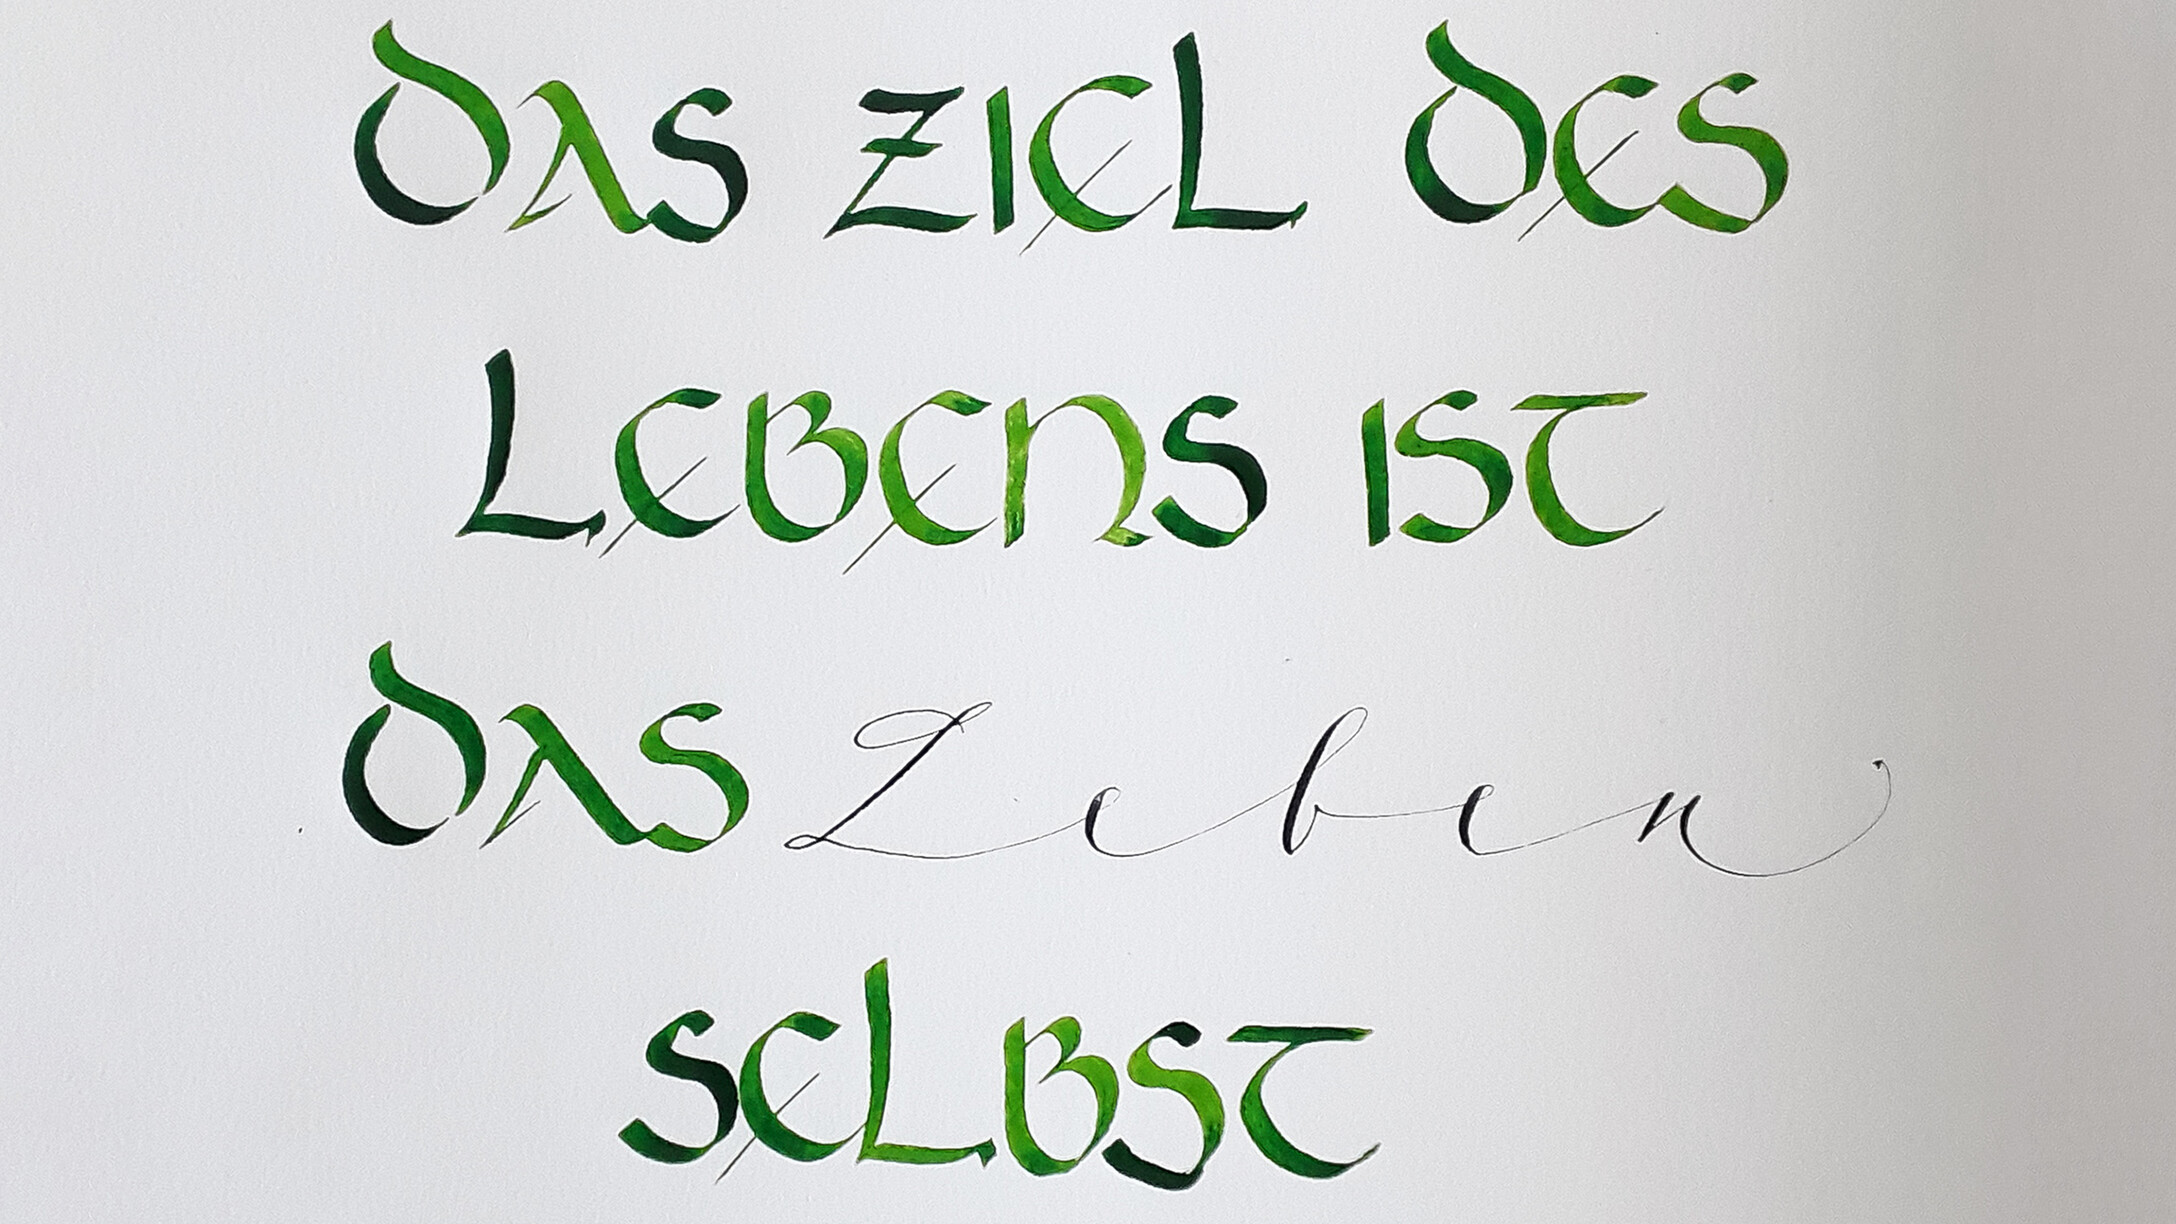 DAS ZIEL DES
LEBENS IST
DAS Leben
SELBST